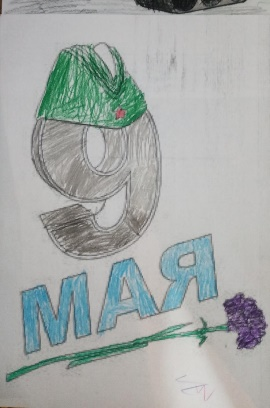 9
МАЯ